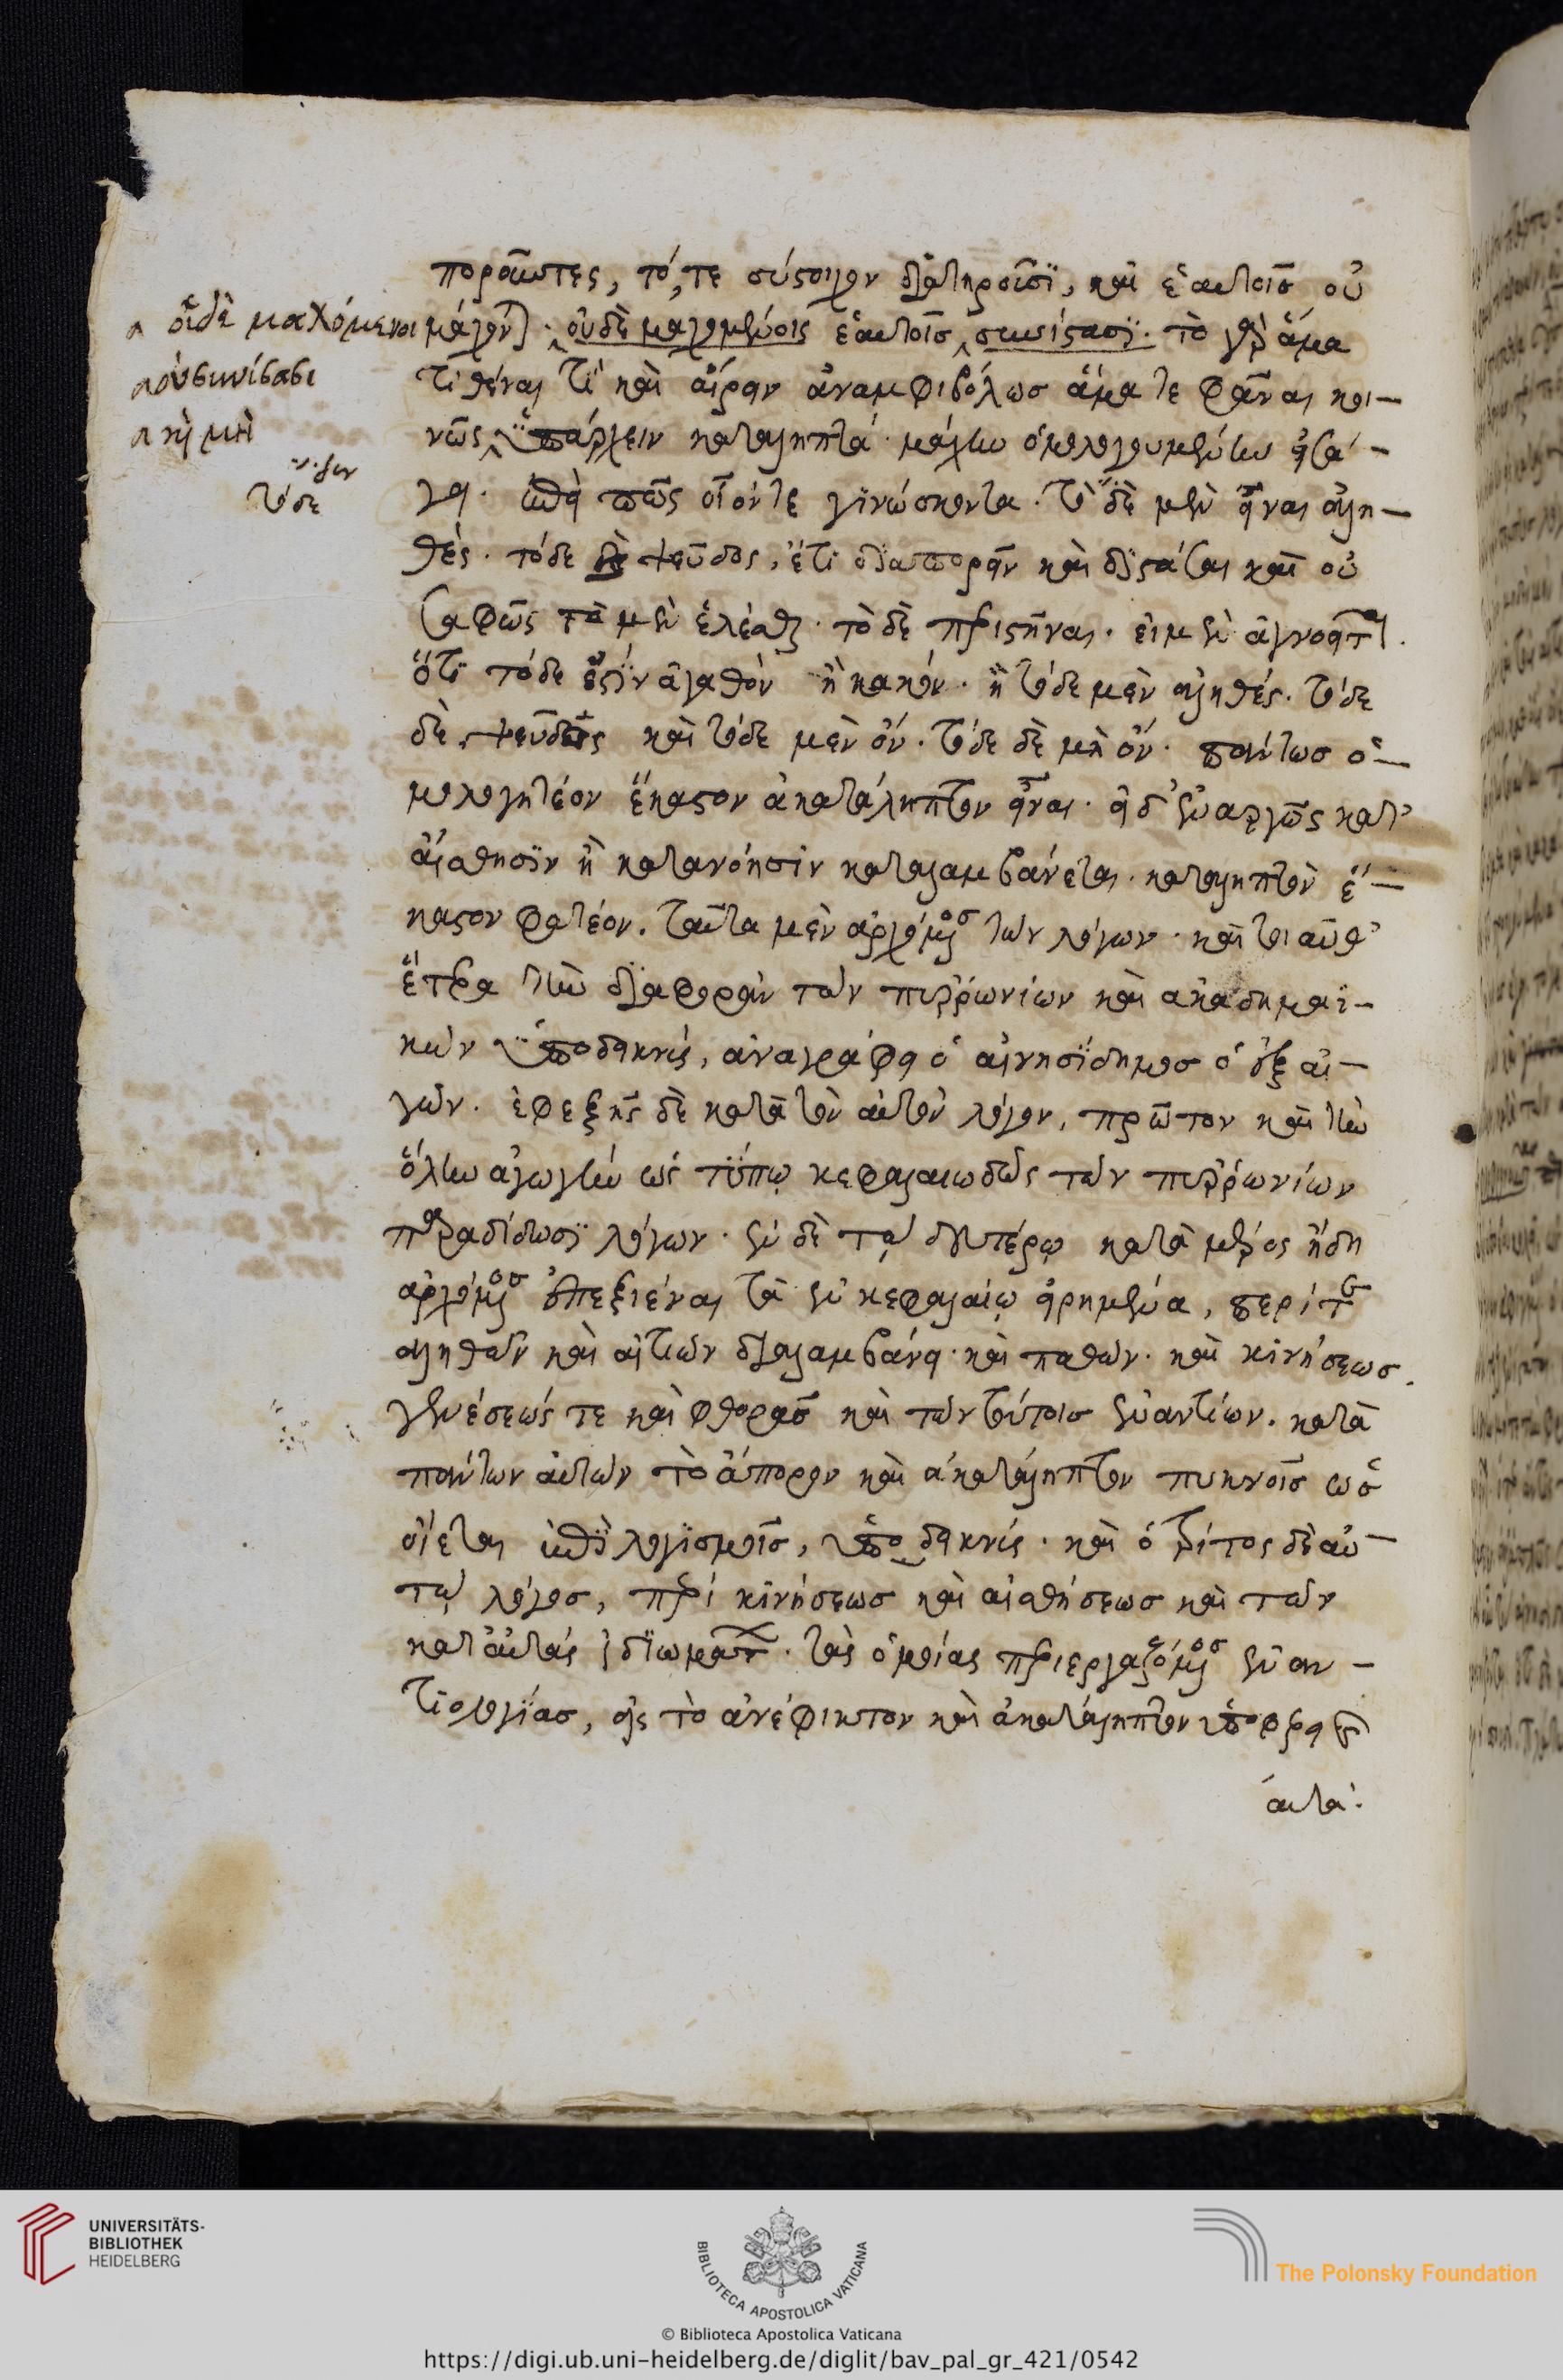 ποροῦντες, τό,τε σύστοιχον διατηροῦσϊ, καὶ ἑαυτοῖς οὐ
οἱ δὲ μαχόμενοι
μάχονται· οὐδὲ μαχομένοις ἑαυτοῖς συνίσασϊ. τὸ γὰρ ἅμα
οὐ συνίσασι
τιθέναι τὶ καὶ αἴρειν ἀναμφιβόλως ἅμα τε φάναι κοι-
ἢ μὴ
νῶς ὑπάρχειν καταληπτά· μάχην ὁμολογουμένην εἰσά-
τόδε
γει. ἐπεὶ πῶς οἷόν τε γϊνώσκοντα. τόδε μὲν εἶναι ἀλη-
θές. τόδε δὲ ψεῦδος, ἔτι διαπορεῖν καὶ διστάσαι καὶ οὐ
σαφῶς τὸ μὲν ἑλέσθαι· τὸ δὲ περιστῆναι. εἰ μὲν ἀγνοεῖται.
ὅτϊ τόδε ἐστϊν ἀγαθὸν ἢ κακόν. ἢ τόδε μὲν ἀληθές. τόδε
δὲ ψεῦδος καὶ τόδε μὲν ὄν. τόδε δὲ μὴ ὄν. πάντως ὁ-
μολογητέον ἕκαστον ἀκατάληπτον εἶναι. εἰ δ' ἐναργῶς κατ'
αἴσθησϊν ἢ κατανόησϊν καταλαμβάνεται. καταληπτὸν ἕ-
καστον φατέον. ταῦτα μὲν ἀρχόμενος τῶν λόγων. καὶ τοιαῦθ'
ἕτερα τὴν διαφορὰν τῶν πυρρωνίων καὶ ἀκαδημαϊ-
κῶν ὑποδεικνὺς, ἀναγράφει ὁ αἰνησϊδημος ὁ ἐξ αἰ-
γῶν. ἐφεξῆς δὲ κατὰ τὸν αὐτὸν λόγον, πρῶτον καὶ τὴν
ὅλην ἀγωγὴν ὡς τϋπῳ κεφαλαιωδῶς τῶν πυρρωνίων
παραδίδωσϊ λόγων. ἐν δὲ τῷ δευτέρῳ κατὰ μέρος ἤδη
ἀρχόμενος ἐπεξιέναι τὰ ἐν κεφαλαίῳ εἰρημένα, περί τε
ἀληθῶν καὶ αἰτιῶν διαλαμβάνει. καὶ παθῶν. καὶ κινήσεως.
γενέσεώς τε καὶ φθορᾶς καὶ τῶν τούτοις ἐναντίων. κατὰ
πάντων αὐτῶν τὸ ἄπορον καὶ ἀκατάληπτον πυκνοῖς ὡς
οἴεται ἐπϊλογϊσμοῖς, ὑποδεικνύς. καὶ ὁ τρίτος δὲ αὐ-
τῷ λόγος, περὶ κινήσεως καὶ αἰσθήσεως καὶ τῶν
κατ' αὐτὰς ἰδϊωμάτων. τὰς ὁμοίας περιεργαζόμενος ἐναν-
τιολογίας, εἰς τὸ ἀνέφικτον καὶ ἀκατάληπτον ὑποφέρει καὶ
αὐτά.
UNIVERSITÄTS-
BIBLIOTHEK
HEIDELBERG
BIBLIOTECA APOSTOLICA VATICANA
The Polonsky Foundation
© Biblioteca Apostolica Vaticana
https://digi.ub.uni-heidelberg.de/diglit/bav_pal_gr_421/0542